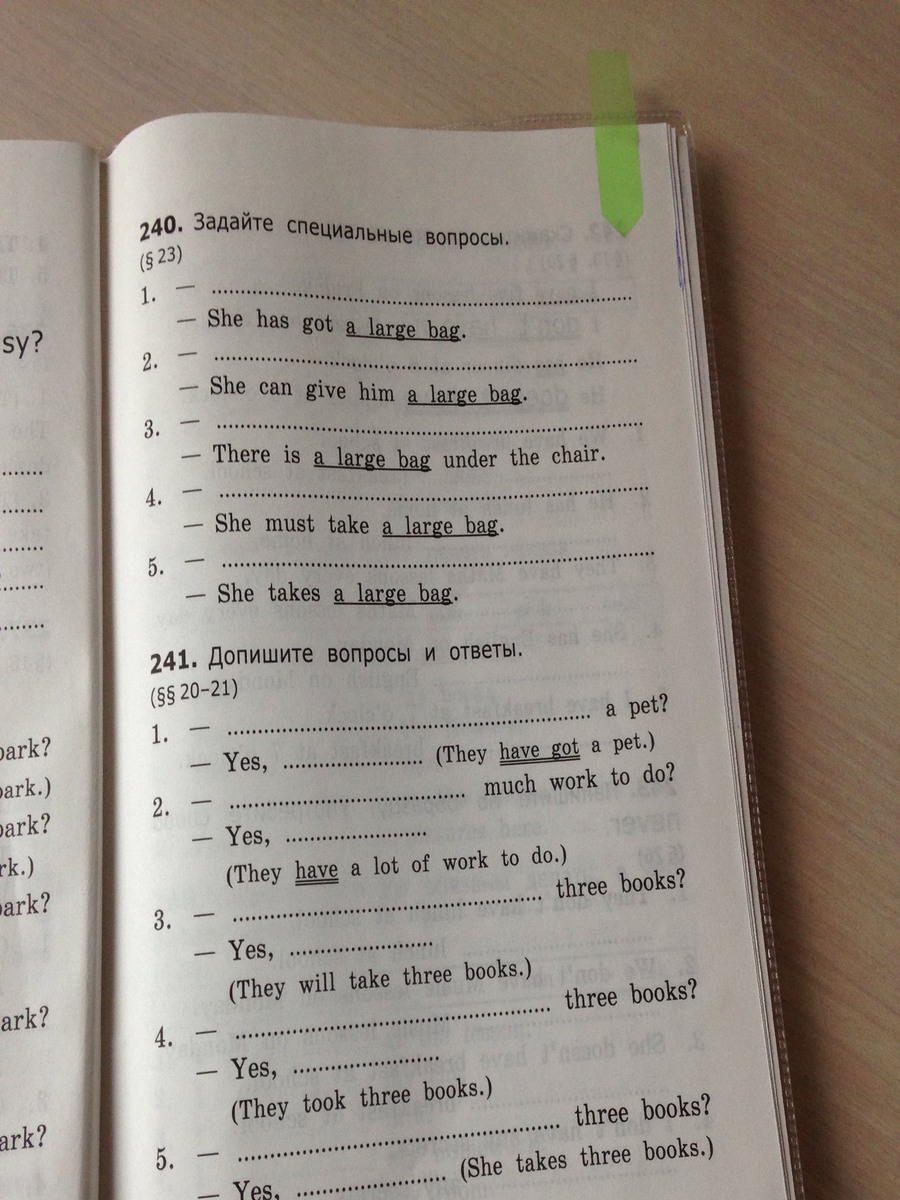 sy?
park?
park.)
park?
rk.)
park?
ark?
ark?
240. Задайте специальные вопросы.
(§ 23)
1. — ..........
— She has got a large bag.
2. — ..........
— She can give him a large bag.
3. — ..........
— There is a large bag under the chair.
4. — ..........
— She must take a large bag.
5. — ..........
— She takes a large bag.
241. Допишите вопросы и ответы.
(§§ 20–21)
1. — .......... a pet?
— Yes, .......... (They have got a pet.)
2. — .......... much work to do?
— Yes, ..........
(They have a lot of work to do.)
3. — .......... three books?
— Yes, ..........
(They will take three books.)
4. — .......... three books?
— Yes, ..........
(They took three books.)
5. — .......... three books?
— Yes, .......... (She takes three books.)